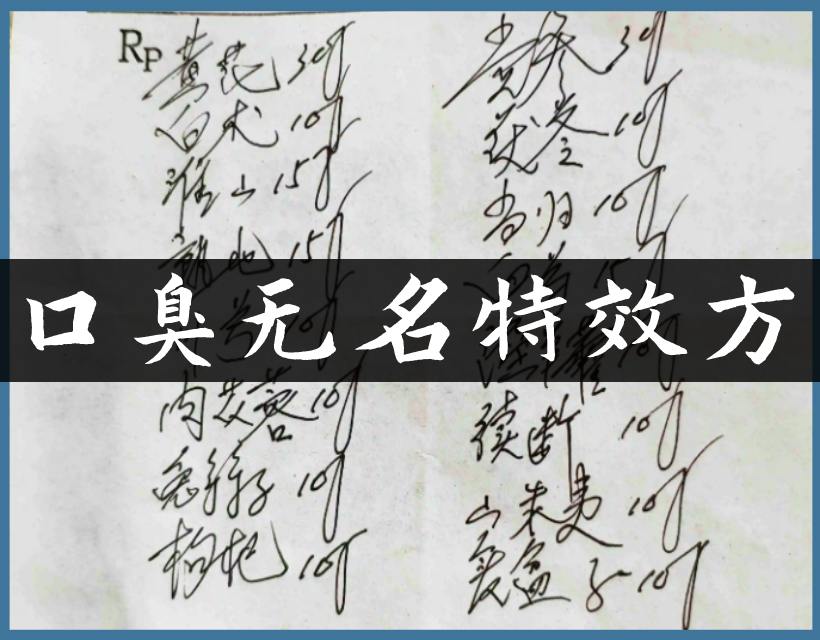 Rp 黄芪 30g 党参 30g
白术 10g 茯苓 10g
淮山 15g 当归 10g
熟地 15g
口臭无名特效方
肉苁蓉 10g 续断 10g
菟丝子 10g 山茱萸 10g
枸杞 10g 覆盆子 10g